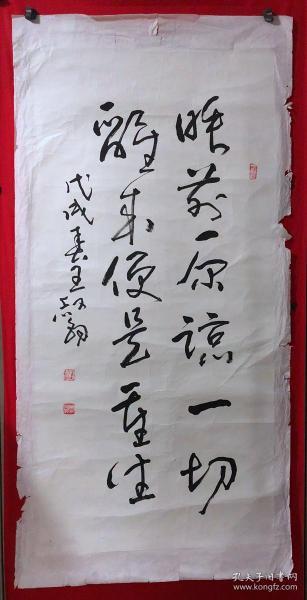 睡前原谅一切
醒来便是重生
戊戌春王
孔夫子旧书网
www.kongfz.com